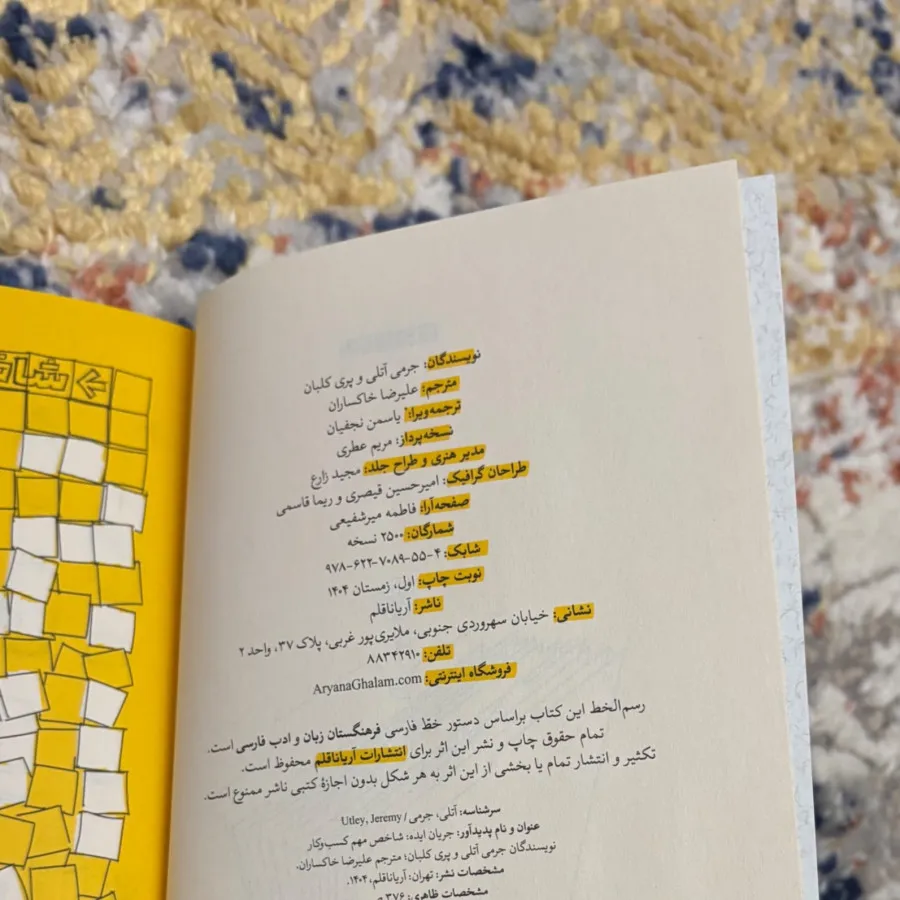 نویسندگان: جرمی آتلی و پری کلبان
مترجم: علیرضا خاکساران
ترجمه‌ویرا: یاسمن نجفیان
نسخه‌پرداز: مریم عطری
مدیر هنری و طراح جلد: مجید زارع
طراحان گرافیک: امیرحسین قیصری و ریما قاسمی
صفحه‌آرا: فاطمه میرشفیعی
شمارگان: ۲۵۰۰ نسخه
شابک: ۴-۵۵-۷۰۸۹-۶۲۲-۹۷۸
نوبت چاپ: اول، زمستان ۱۴۰۴
ناشر: آریاناقلم
نشانی: خیابان سهروردی جنوبی، ملایری‌پور غربی، پلاک ۳۷، واحد ۲
تلفن: ۸۸۳۴۲۹۱۰
فروشگاه اینترنتی: AryanaGhalam.com
رسم‌الخط این کتاب براساس دستور خط فارسی فرهنگستان زبان و ادب فارسی است.
تمام حقوق چاپ و نشر این اثر برای انتشارات آریاناقلم محفوظ است.
تکثیر و انتشار تمام یا بخشی از این اثر به هر شکل بدون اجازهٔ کتبی ناشر ممنوع است.
سرشناسه: آتلی، جرمی / Utley, Jeremy
عنوان و نام پدیدآور: جریان ایده: شاخص مهم کسب‌وکار
نویسندگان جرمی آتلی و پری کلبان؛ مترجم علیرضا خاکساران.
مشخصات نشر: تهران: آریاناقلم، ۱۴۰۴.
مشخصات ظاهری: ۳۷۶ ص